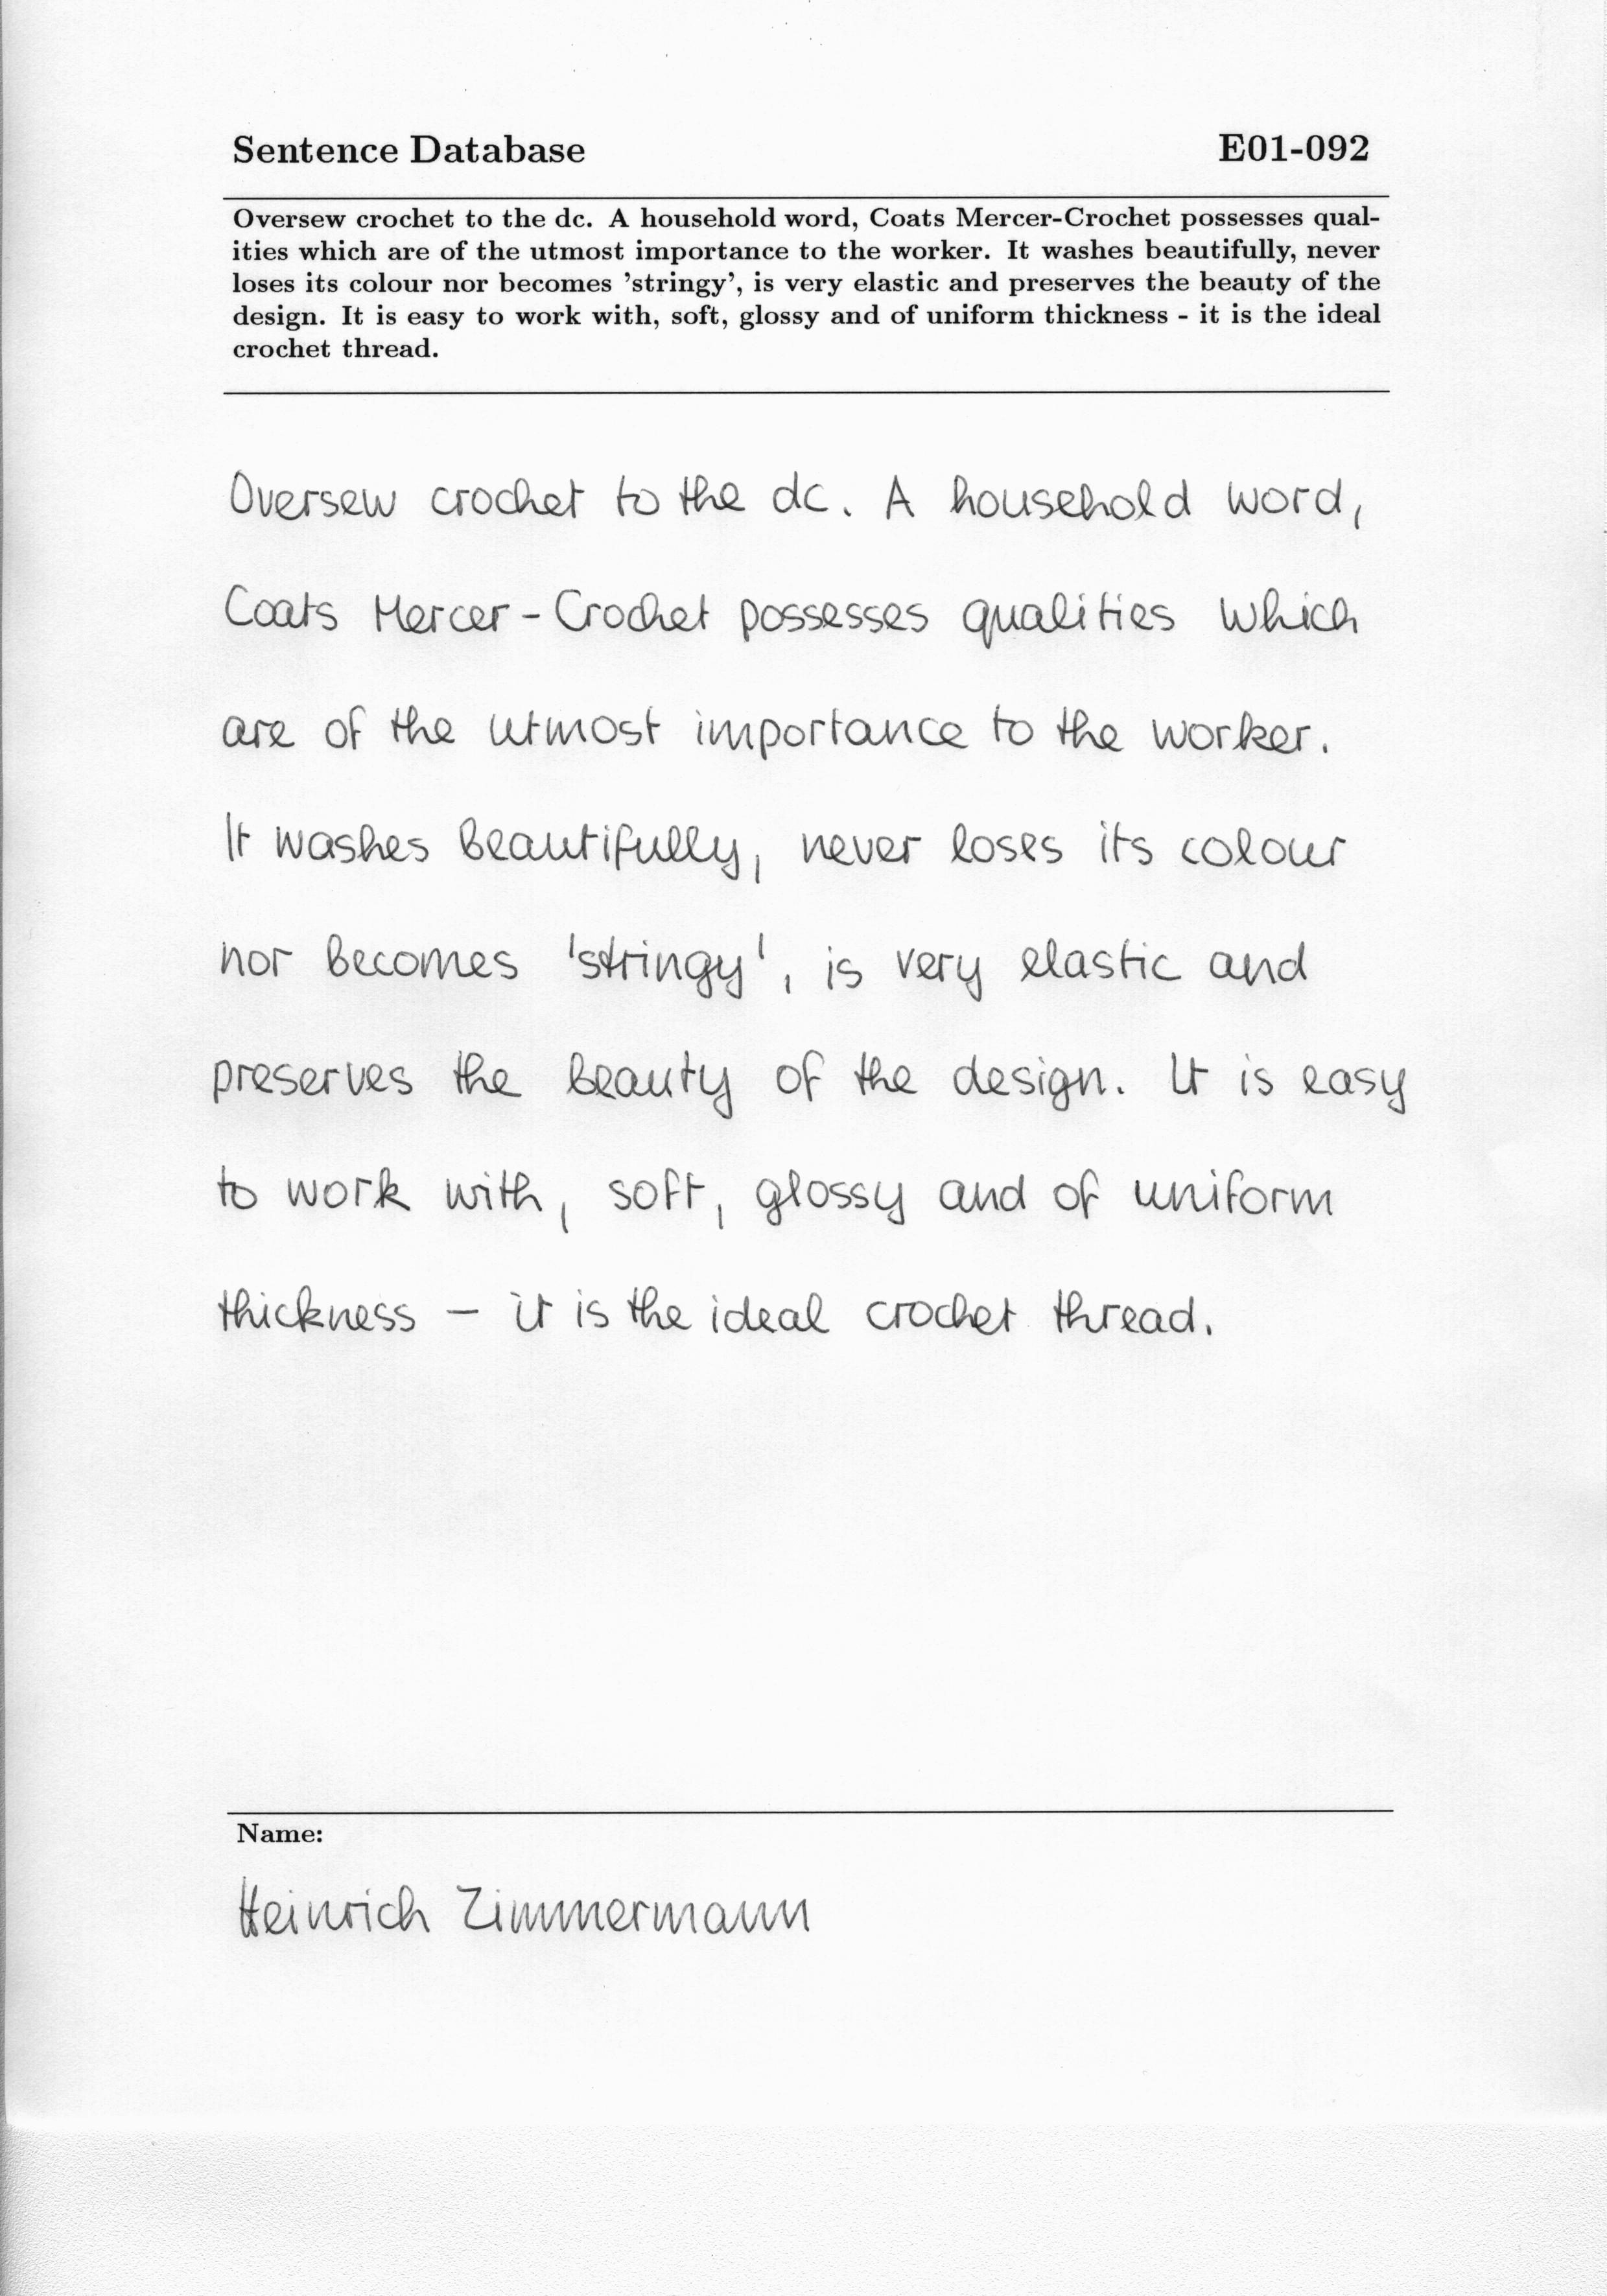 Sentence Database E01-092
Oversew crochet to the dc. A household word, Coats Mercer-Crochet possesses qual-
ities which are of the utmost importance to the worker. It washes beautifully, never
loses its colour nor becomes 'stringy', is very elastic and preserves the beauty of the
design. It is easy to work with, soft, glossy and of uniform thickness - it is the ideal
crochet thread.
Oversew crochet to the dc. A household word,
Coats Mercer-Crochet possesses qualities which
are of the utmost importance to the worker.
It washes beautifully, never loses its colour
nor becomes 'stringy', is very elastic and
preserves the beauty of the design. It is easy
to work with, soft, glossy and of uniform
thickness - it is the ideal crochet thread.
Name:
Heinrich Zimmermann